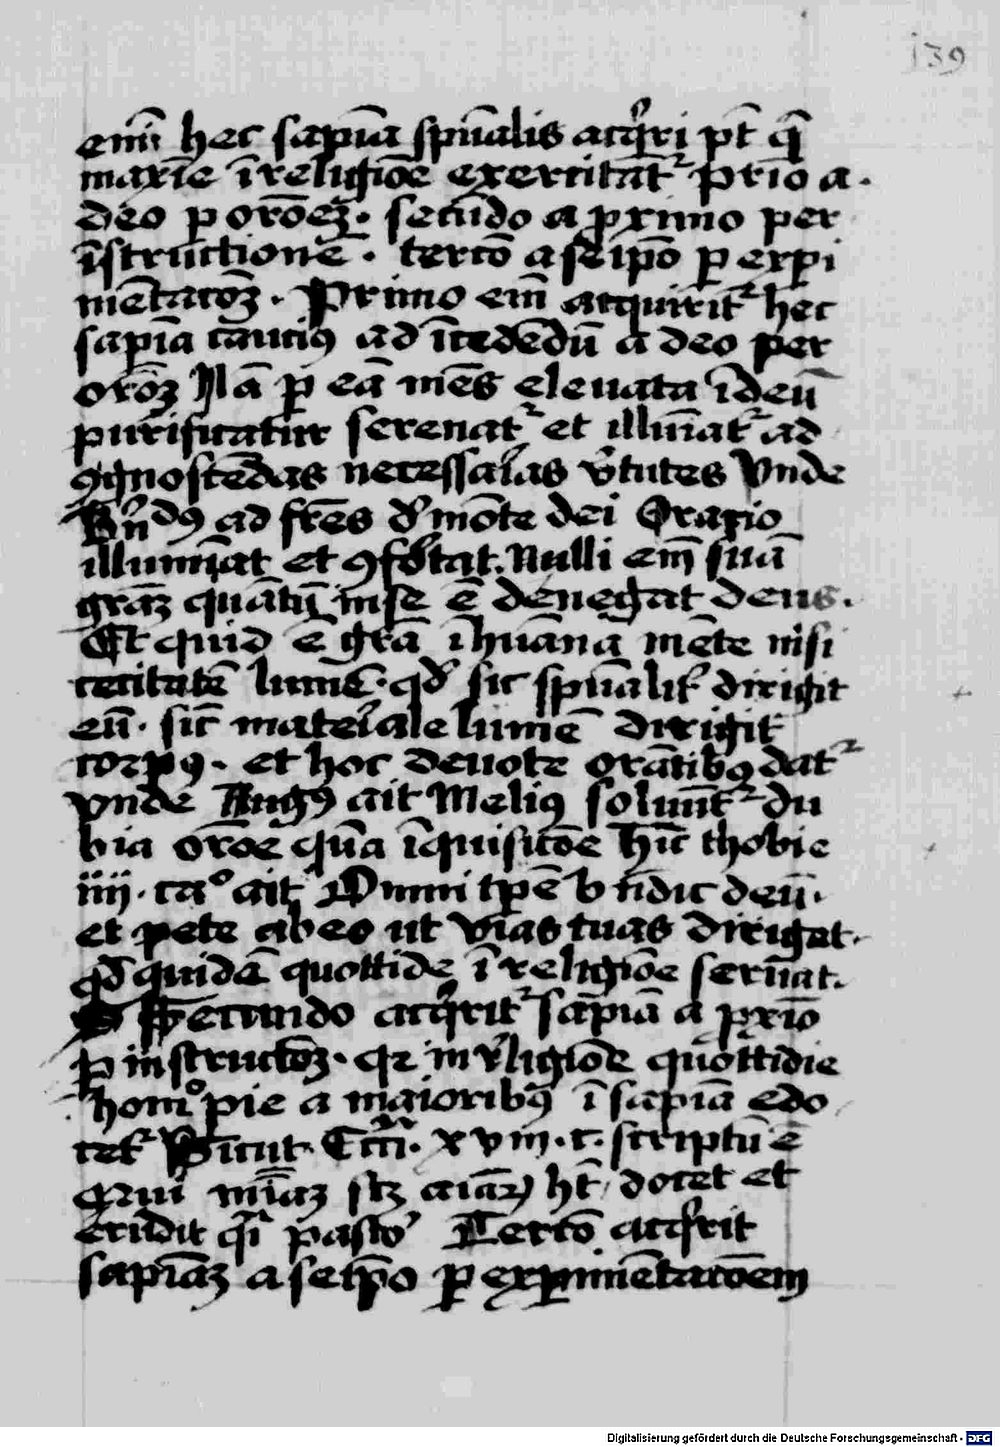 139
em̄ hec sapīa spūalis acq̉ri pt̄ q̄
maxīe ī religiōe exercitat᷑ p̄rīo a.
deo ꝑ orōeꝫ. secūdo a ꝓximo per
īstructionē. tercō a seip̄o ꝑ expi
mētacōꝫ. Primo em̄ acquirit᷑ hec
sapīa cauciꝰ ad ītedēdū a deo per
orōꝫ Nā ꝑ eā mēs eleuata ī deū
purificatur serenat᷑ et illuīat᷑ ad
ꝯgnoscēdas necessaͥas v̓tutes Vnde
Bn̄dꝰ ad fr̄es d̓ mōte dei Oratio
illumīat et ꝯfortat. Nulli em̄ suā
grāꝫ quātū in se ē denegat deus.
Et quid ē grā ī huāna mēte nisi
lumē. qd̓ sic spūalit᷑ dirigit
eū. sic̄ mateͥale lumē dirigit
corpꝰ. et hoc deuote orātibꝰ dat᷑
vnde Augꝰ ait Meliꝰ soluūt᷑ du
bia orōe q̄ īquisicōe Hīc thobie
iiii. caº ait Omni tp̄e bn̄dic deū.
et pete ab eo ut vias tuas dirigat.
qd̓ quidē quottide ī religiōe seruat.
Secundo acq̉rit᷑ sapīa a ꝓxīo
ꝑ instructōꝫ. qꝛ in religiōe quottidie
homo pie a maioribꝰ ī sapīa edo
cet᷑ Sicut Ecc̄i. xviii. c. scriptū ē
Qui mīaꝫ hꝫ docet et
erudit q̄i pastor Tercō acq̉rit
sapīaꝫ a seip̄o ꝑ expimētacōem
Digitalisierung gefördert durch die Deutsche Forschungsgemeinschaft - DFG